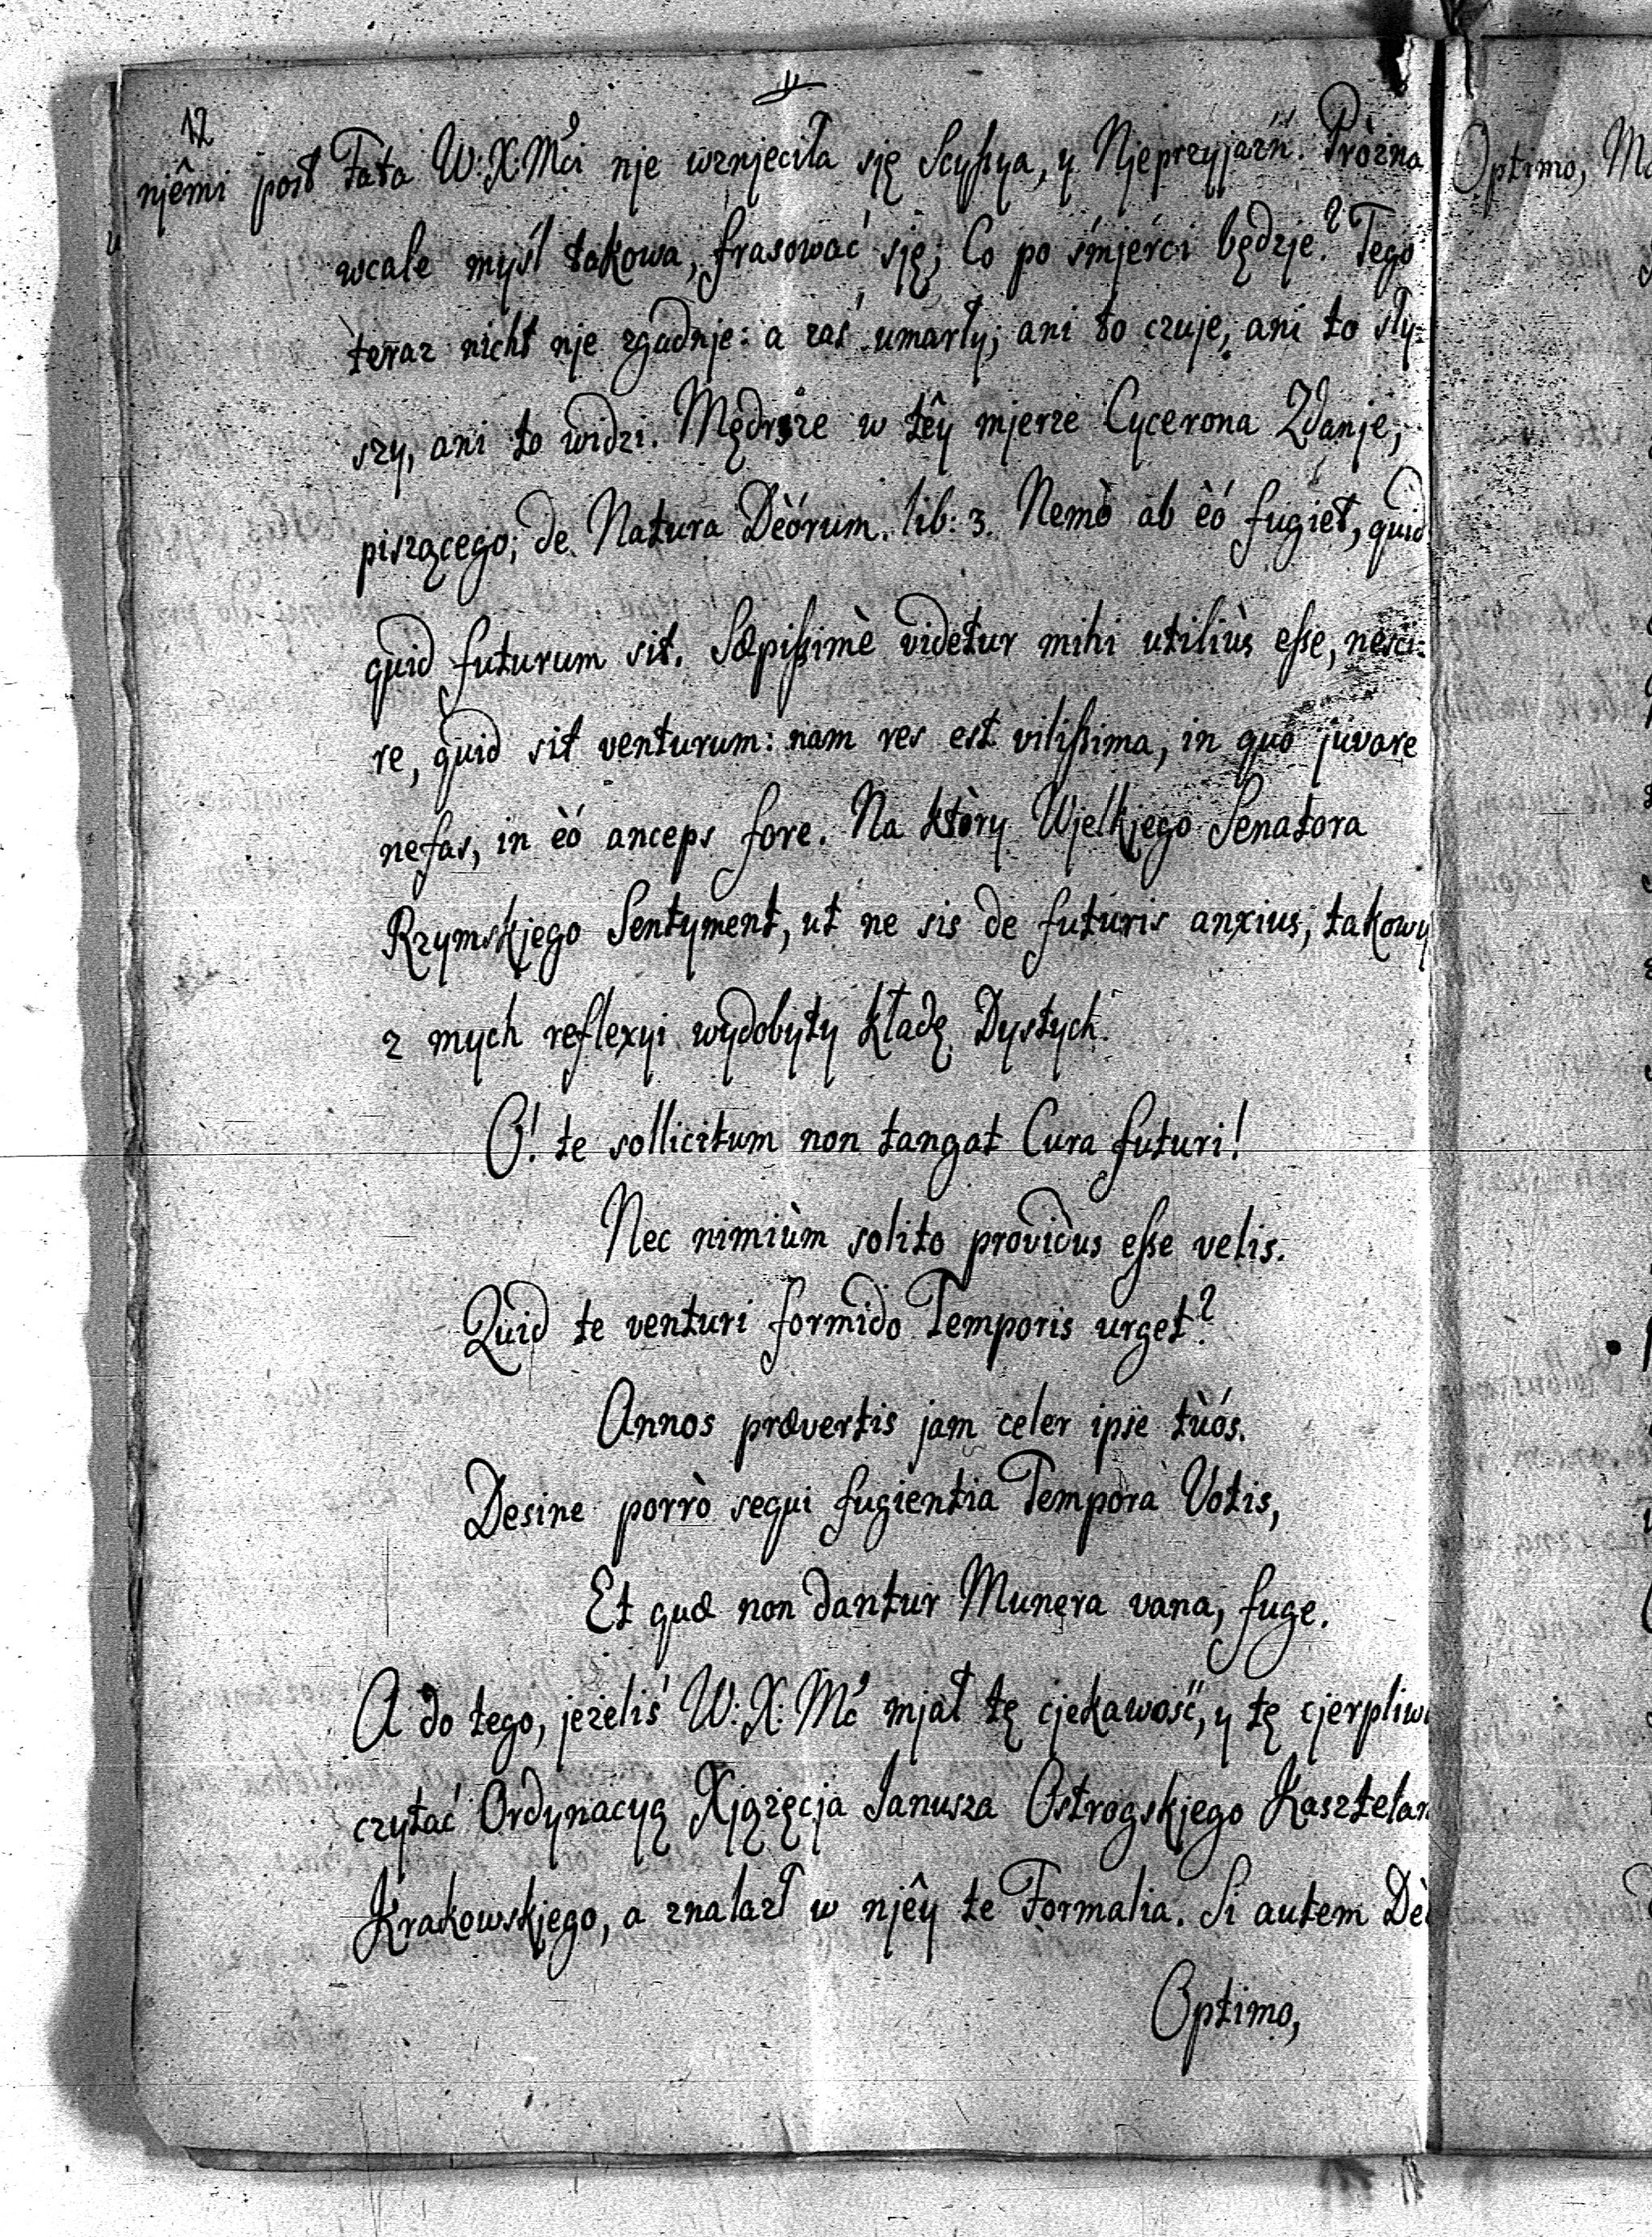 12
njêmi post Fata W:X:Mći nje wznjeciła się Scyssya, y Njeprzyjaźń. Pròżna
wcale myśl takowa, frasować się; Co po śmjerci będzje? Tego
teraz nicht nje zgadnje: a zaś umarły; ani to czuje, ani to sły:
szy, ani to widzi. Mędrsze w têy mjerze Cycerona Zdanje,
piszącego; de Natura Dèórum. lib: 3. Nemò ab èó fugiet, quid
quid futurum sit. Sæpissimè videtur mihi utiliùs esse, nesci:
re, quid sit venturum: nam res est vilissima, in quò juvare
nefas, in èó anceps fore. Na ktòry Wjelkjego Senatora
Rzymskjego Sentyment, ut ne sis de futuris anxius, takowy
z mych reflexyi wydobyty kładę Dystych.
O! te sollicitum non tangat Cura futuri!
Nec nimiùm solito providus esse velis.
Quid te venturi formido Temporis urget?
Annos prævertis jam celer ipse tùós.
Desine porrò sequi fugientia Tempora Votis,
Et quæ non dantur Munera vana, fuge.
A do tego, jeżeliś W:X:Mć mjał tę cjekawość, y tę cjerpliw
czytać Ordynacyą Xjążęcja Janusza Ostrogskjego Kasztelan
Krakowskjego, a znalazł w njêy te Formalia. Si autem Dè
Optimo,
Optimo, M